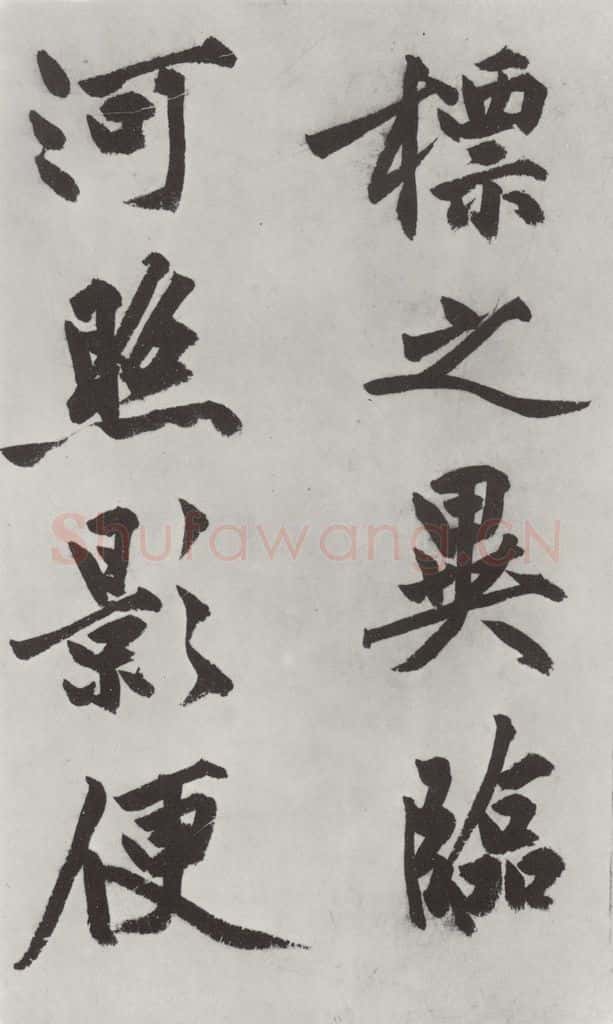 標之異臨
河照影便
Shufawang.CN